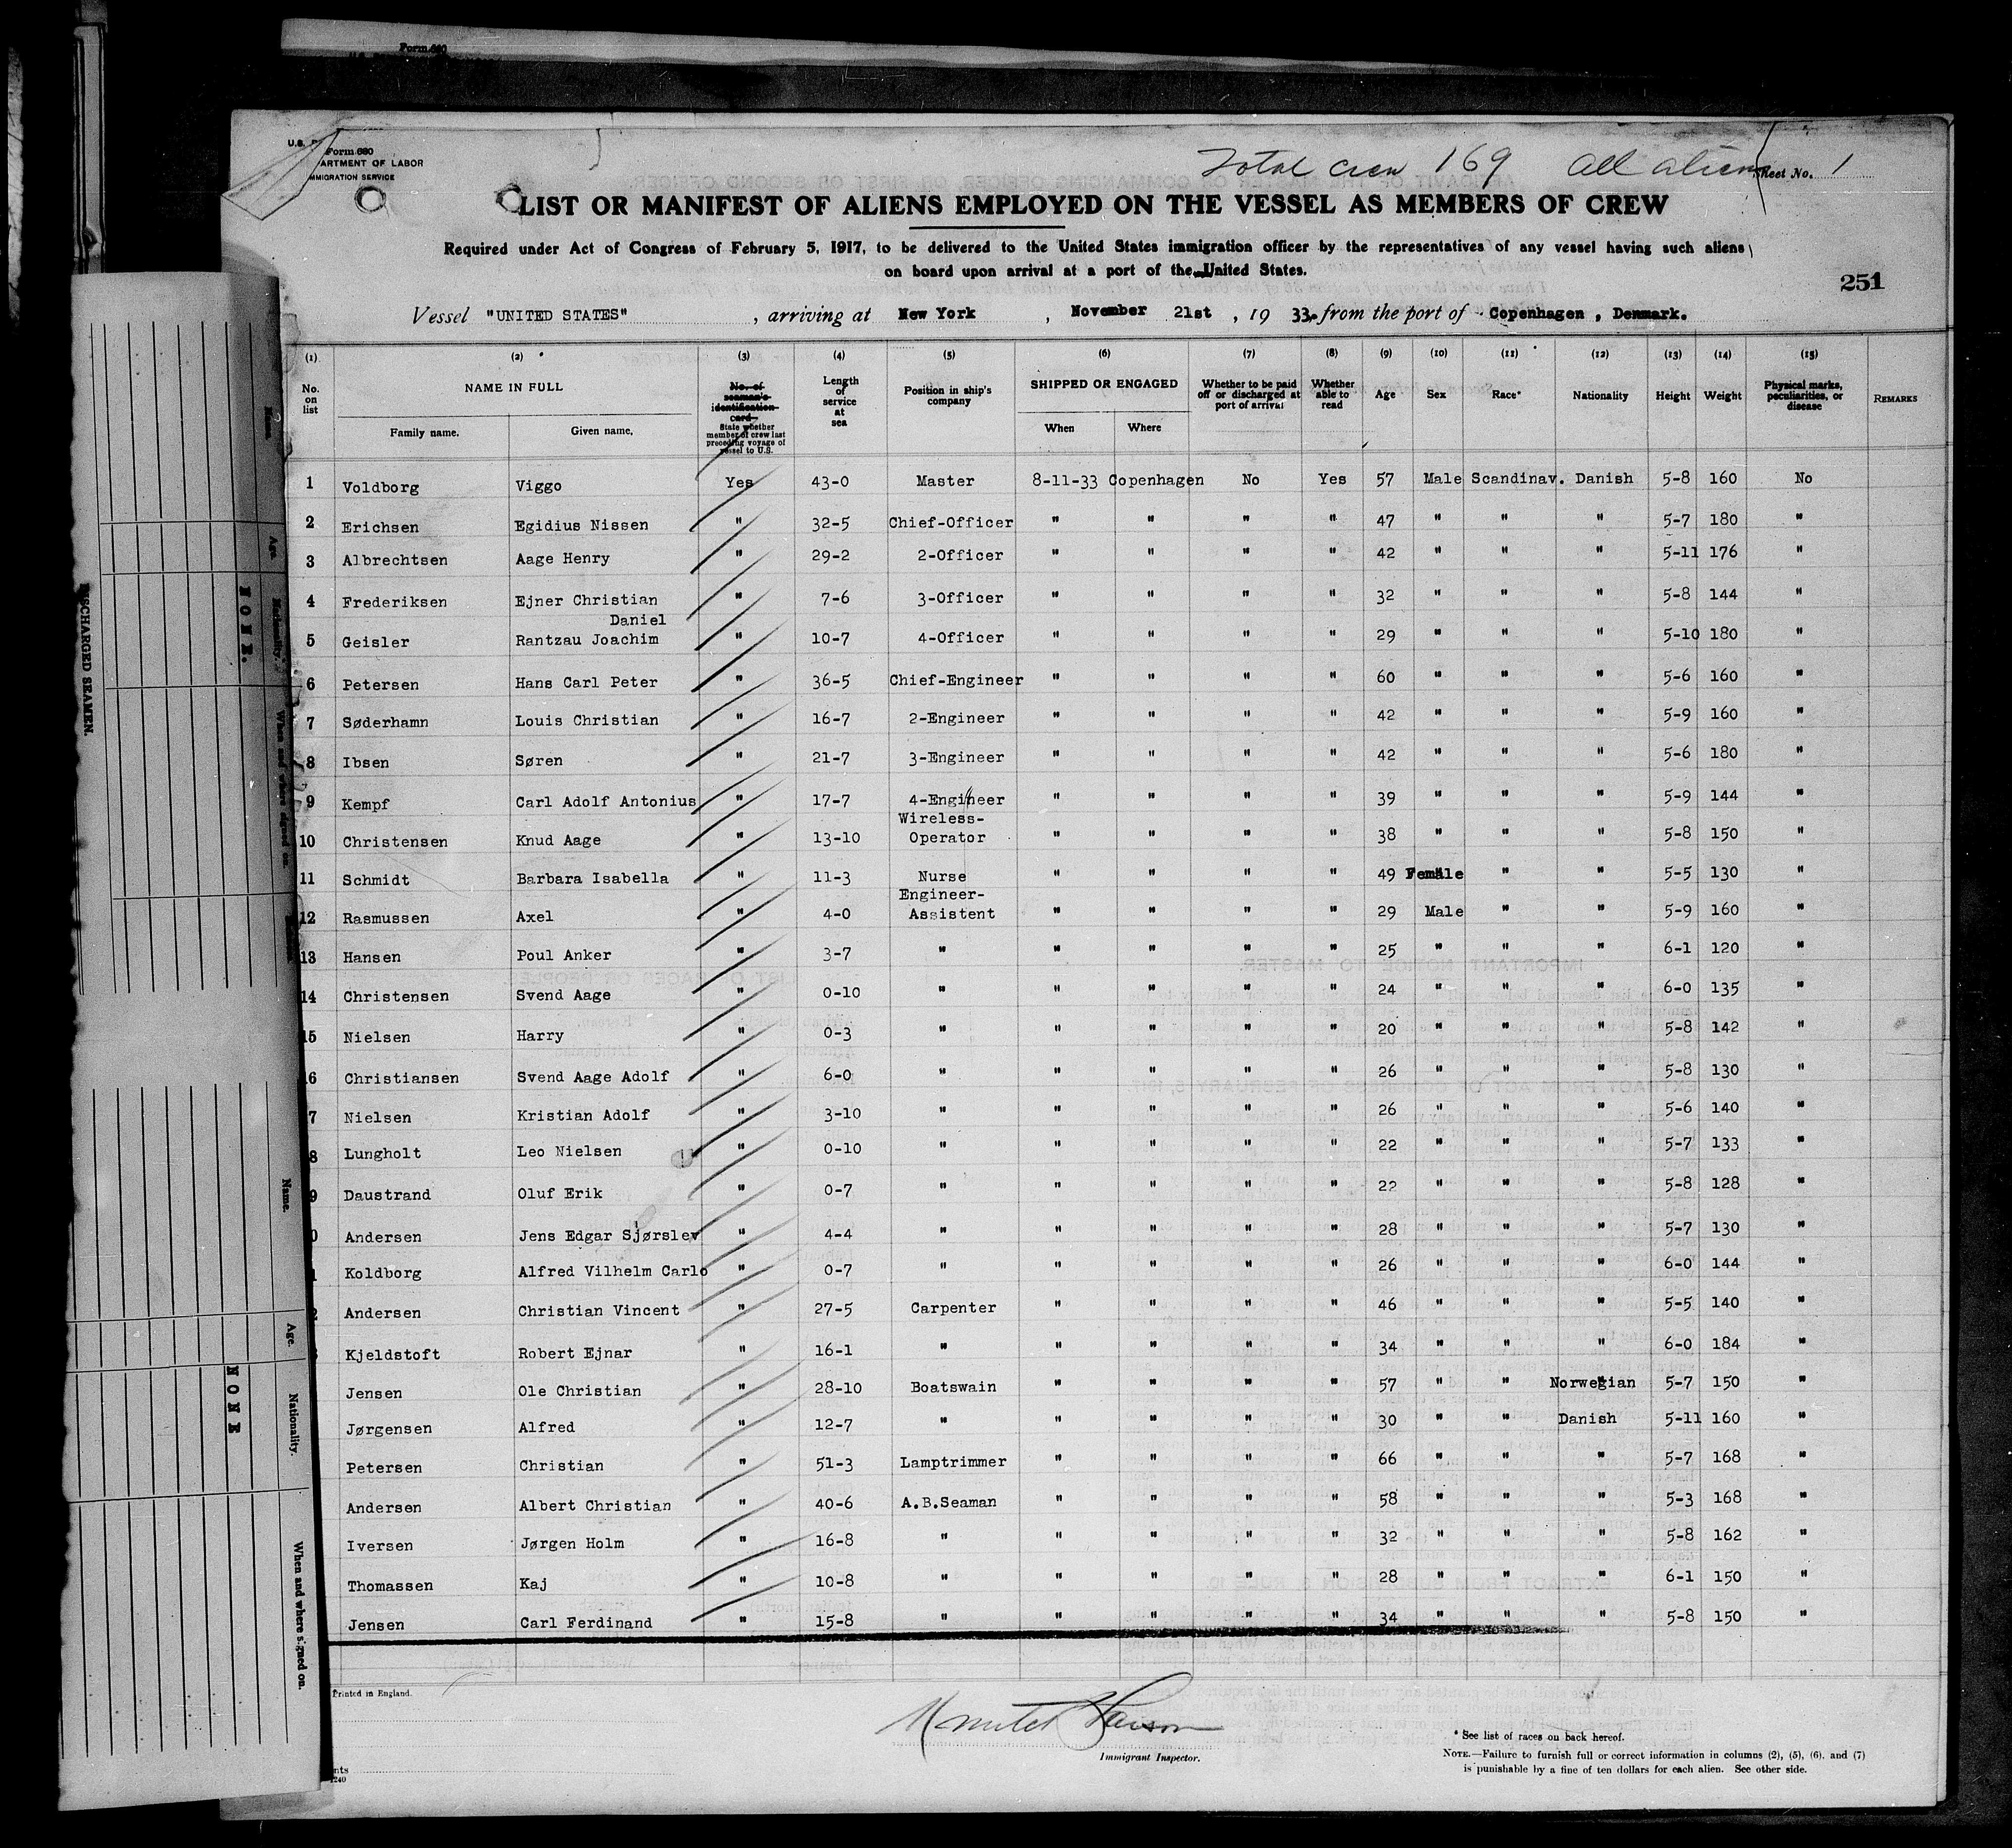 Form 680
Total crew 169 All aliens Sheet No. 1
U.S. Form 680
ARTMENT OF LABOR
MMIGRATION SERVICE
LIST OR MANIFEST OF ALIENS EMPLOYED ON THE VESSEL AS MEMBERS OF CREW
Required under Act of Congress of February 5, 1917, to be delivered to the United States immigration officer by the representatives of any vessel having such aliens
on board upon arrival at a port of the United States.
251
Vessel "UNITED STATES" , arriving at New York , November 21st , 19 33. from the port of Copenhagen , Denmark.
(1) (2) (3) (4) (5) (6) (7) (8) (9) (10) (11) (12) (13) (14) (15)
No. on list NAME IN FULL Family name. Given name. No. of seaman's identification card State whether member of crew last preceding voyage of vessel to U.S. Length of service at sea Position in ship's company SHIPPED OR ENGAGED When Where Whether to be paid off or discharged at port of arrival Whether able to read Age Sex Race* Nationality Height Weight Physical marks, peculiarities, or disease REMARKS
1 Voldborg Viggo Yes 43-0 Master 8-11-33 Copenhagen No Yes 57 Male Scandinav. Danish 5-8 160 No
2 Erichsen Egidius Nissen " 32-5 Chief-Officer " " " " 47 " " " 5-7 180 "
3 Albrechtsen Aage Henry " 29-2 2-Officer " " " " 42 " " " 5-11 176 "
4 Frederiksen Ejner Christian " 7-6 3-Officer " " " " 32 " " " 5-8 144 "
Daniel
5 Geisler Rantzau Joachim " 10-7 4-Officer " " " " 29 " " " 5-10 180 "
6 Petersen Hans Carl Peter " 36-5 Chief-Engineer " " " " 60 " " " 5-6 160 "
7 Søderhamn Louis Christian " 16-7 2-Engineer " " " " 42 " " " 5-9 160 "
8 Ibsen Søren " 21-7 3-Engineer " " " " 42 " " " 5-6 180 "
9 Kempf Carl Adolf Antonius " 17-7 4-Engineer " " " " 39 " " " 5-9 144 "
Wireless-
10 Christensen Knud Aage " 13-10 Operator " " " " 38 " " " 5-8 150 "
11 Schmidt Barbara Isabella " 11-3 Nurse " " " " 49 Female " " 5-5 130 "
Engineer-
12 Rasmussen Axel " 4-0 Assistent " " " " 29 Male " " 5-9 160 "
13 Hansen Poul Anker " 3-7 " " " " " 25 " " " 6-1 120 "
14 Christensen Svend Aage " 0-10 " " " " " 24 " " " 6-0 135 "
15 Nielsen Harry " 0-3 " " " " " 20 " " " 5-8 142 "
6 Christiansen Svend Aage Adolf " 6-0 " " " " " 26 " " " 5-8 130 "
7 Nielsen Kristian Adolf " 3-10 " " " " " 26 " " " 5-6 140 "
8 Lungholt Leo Nielsen " 0-10 " " " " " 22 " " " 5-7 133 "
9 Daustrand Oluf Erik " 0-7 " " " " " 22 " " " 5-8 128 "
0 Andersen Jens Edgar Sjørslev " 4-4 " " " " " 28 " " " 5-7 130 "
1 Koldborg Alfred Vilhelm Carlo " 0-7 " " " " " 26 " " " 6-0 144 "
Andersen Christian Vincent " 27-5 Carpenter " " " " 46 " " " 5-5 140 "
Kjeldstoft Robert Ejnar " 16-1 " " " " " 34 " " " 6-0 184 "
Jensen Ole Christian " 28-10 Boatswain " " " " 57 " " Norwegian 5-7 150 "
Jørgensen Alfred " 12-7 " " " " " 30 " " Danish 5-11 160 "
Petersen Christian " 51-3 Lamptrimmer " " " " 66 " " " 5-7 168 "
Andersen Albert Christian " 40-6 A.B.Seaman " " " " 58 " " " 5-3 168 "
Iversen Jørgen Holm " 16-8 " " " " " 32 " " " 5-8 162 "
Thomassen Kaj " 10-8 " " " " " 28 " " " 6-1 150 "
Jensen Carl Ferdinand " 15-8 " " " " " 34 " " " 5-8 150 "
Printed in England.
Immigrant Inspector.
* See list of races on back hereof.
NOTE.—Failure to furnish full or correct information in columns (2), (5), (6), and (7)
is punishable by a fine of ten dollars for each alien. See other side.
nts
1240
DISCHARGED SEAMEN.
Name. Age. Nationality. When and where signed on
NONE.
Name. Age. Nationality. When and where signed on.
NONE